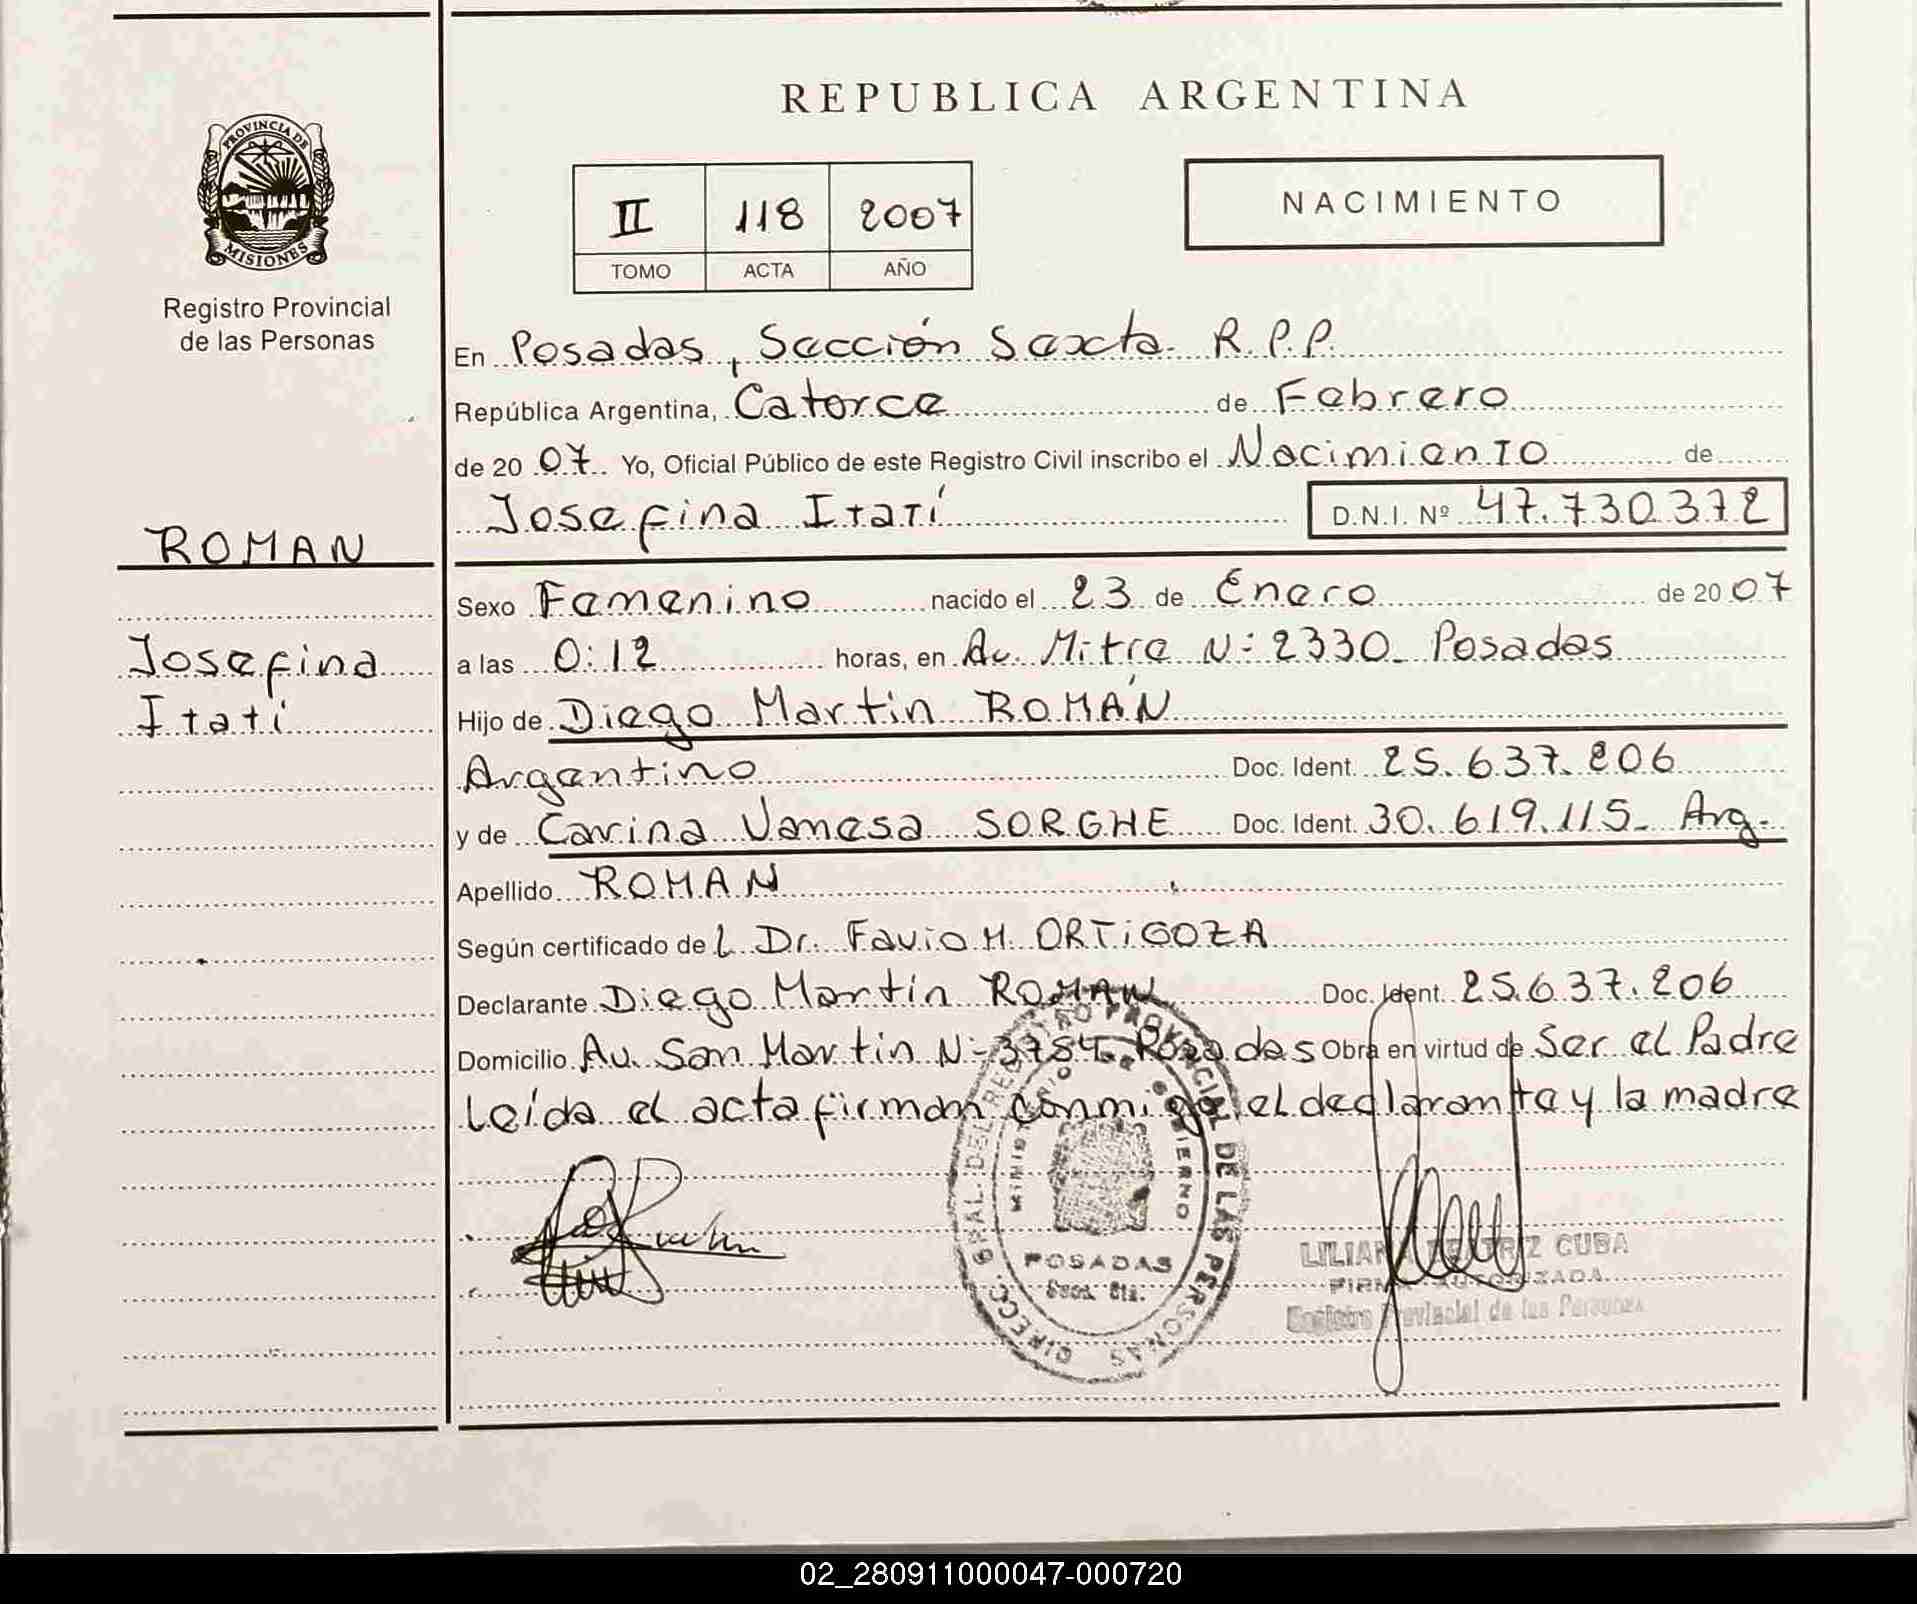 REPUBLICA ARGENTINA
PROVINCIA DE
MISIONES
Registro Provincial
de las Personas
II 118 2007
TOMO ACTA AÑO
NACIMIENTO
En Posadas, Sección Sexta R.P.P.
República Argentina, Catorce de Febrero
de 20 07 Yo, Oficial Público de este Registro Civil inscribo el Nacimiento de
Josefina Itatí D.N.I. Nº 47.730.372
ROMAN
Josefina
Itatí
Sexo Femenino nacido el 23 de Enero de 20 07
a las 0:12 horas, en Av. Mitre N: 2330 Posadas
Hijo de Diego Martín ROMÁN
Argentino Doc. Ident. 25.637.206
y de Carina Vanesa SORGHE Doc. Ident. 30.619.115- Arg.
Apellido ROMAN
Según certificado de L Dr. Favio M. ORTIGOZA
Declarante Diego Martín ROMAN Doc. Ident. 25.637.206
Domicilio Av. San Martin N: Posadas Obra en virtud de Ser el Padre
Leída el acta firman conmigo el declarante y la madre
DIRECC. GRAL. DEL REGISTRO PROVINCIAL DE LAS PERSONAS
POSADAS
Secc. 6ta.
LILIANA BEATRIZ CUBA
FIRMA AUTORIZADA
Registro Provincial de las Personas
02_280911000047-000720